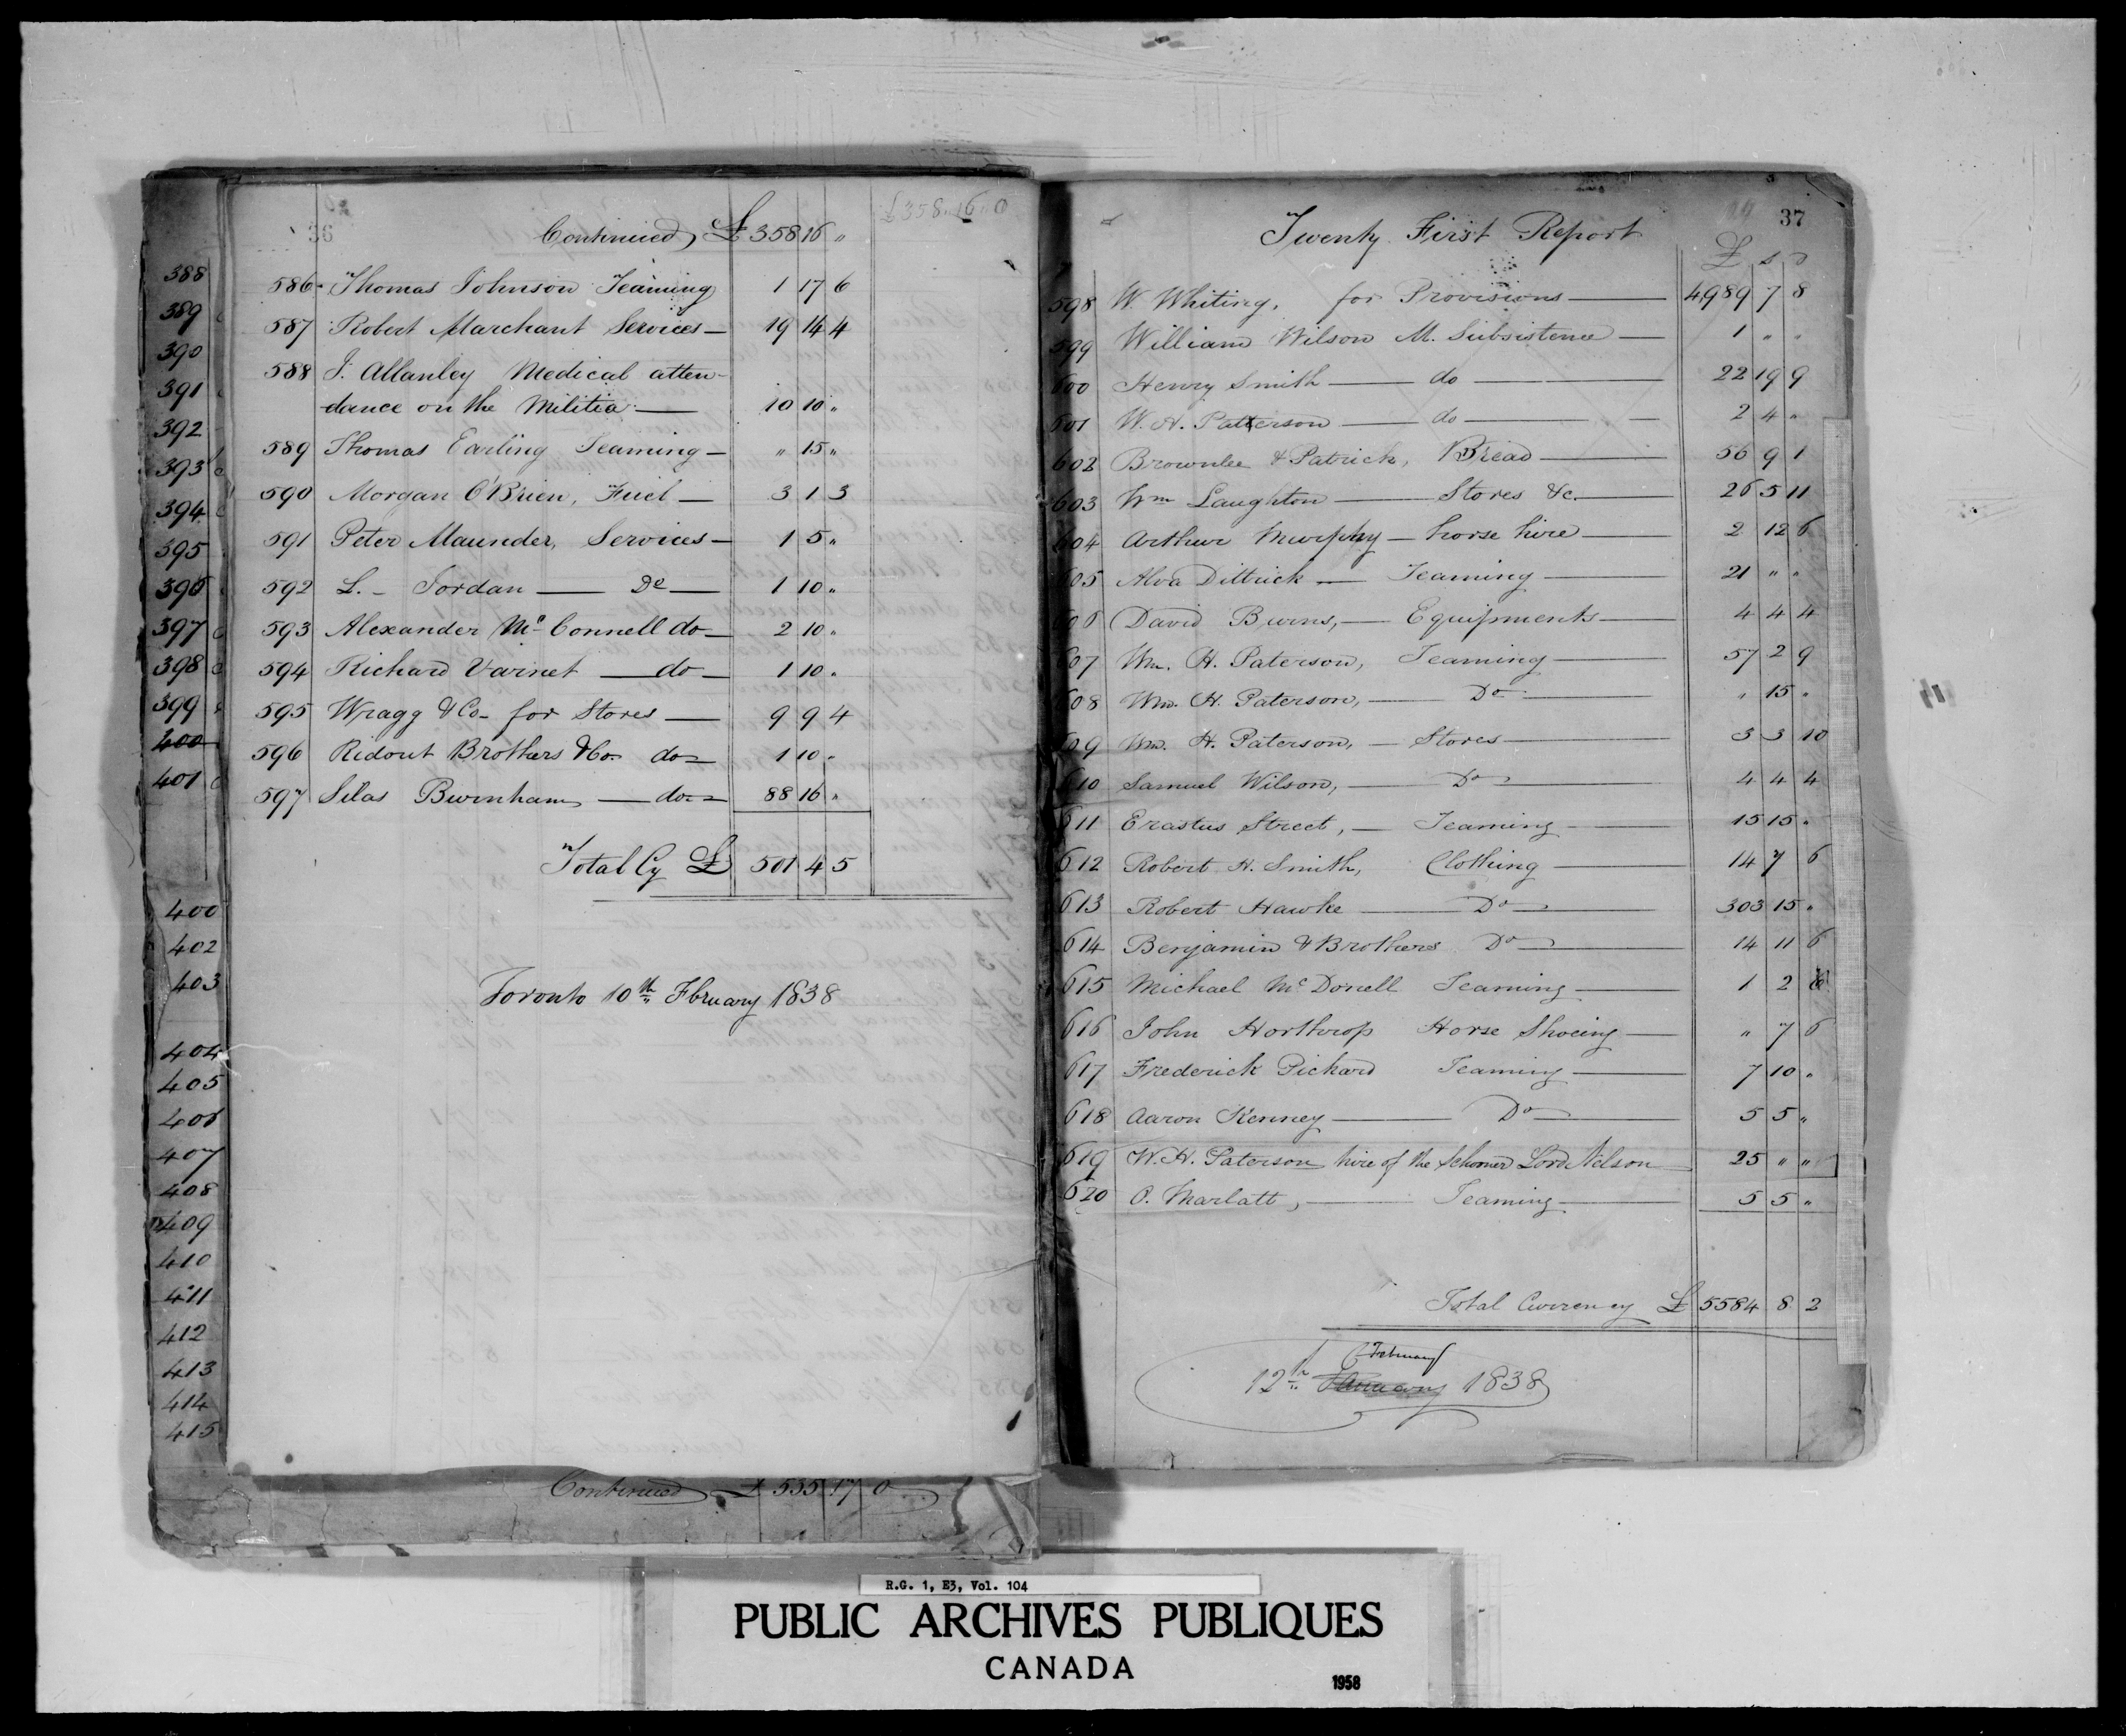 36
Continued £ 358 16 "
£358.. 16.. 0
586 Thomas Johnson Teaming 1 17 6
587 Robert Marchant Services 19 14 4
588 J. Allanley Medical atten-
dance on the Militia 10 10 "
589 Thomas Earling Teaming " 15 "
590 Morgan O'Brien, Fuel 3 1 3
591 Peter Maunder, Services 1 5 "
592 L. Jordan Do 1 10 "
593 Alexander McConnell do 2 10 "
594 Richard Varnet do 1 10 "
595 Wragg & Co for Stores 9 9 4
596 Ridout Brothers & Co. do 1 10 "
597 Silas Burnham do 88 16 "
Total Cy £ 501 4 5
Toronto 10th Fbruary 1838
Continued £ 535 17 0
388
389
390
391
392
393
394
395
396
397
398
399
400
401
400
402
403
404
405
406
407
408
409
410
411
412
413
414
415
37
Twenty First Report
£ s d
598 W. Whiting, for Provisions 4989 7 8
599 William Wilson M. Subsistence 1 " "
600 Henry Smith do 22 19 9
601 W. H. Patterson do 2 4 "
602 Brownlee & Patrick, Bread 56 9 1
603 Wm Laughton Stores &c. 26 5 11
604 Arthur Murphy horse hire 2 12 6
605 Alva Dittrick Teaming 21 " "
606 David Burns, Equipments 4 4 4
607 Wm. H. Paterson, Teaming 57 2 9
608 Wm. H. Paterson, Do " 15 "
609 Wm. H. Paterson, Stores 3 3 10
610 Samuel Wilson, Do 4 4 4
611 Erastus Street, Teaming 15 15 "
612 Robert H. Smith, Clothing 14 7 6
613 Robert Hawke Do 303 15 "
614 Benjamin & Brothers Do 14 11 6
615 Michael McDonell Teaming 1 2 6
616 John Northrop Horse Shoeing " 7 6
617 Frederick Pickard Teaming 7 10 "
618 Aaron Kenney Do 5 5 "
619 W. H. Paterson hire of the Schooner Lord Nelson 25 " "
620 O. Marlatt, Teaming 5 5 "
Total Currency £ 5584 8 2
February
12th January 1838
R.G. 1, E3, Vol. 104
PUBLIC ARCHIVES PUBLIQUES
CANADA
1958